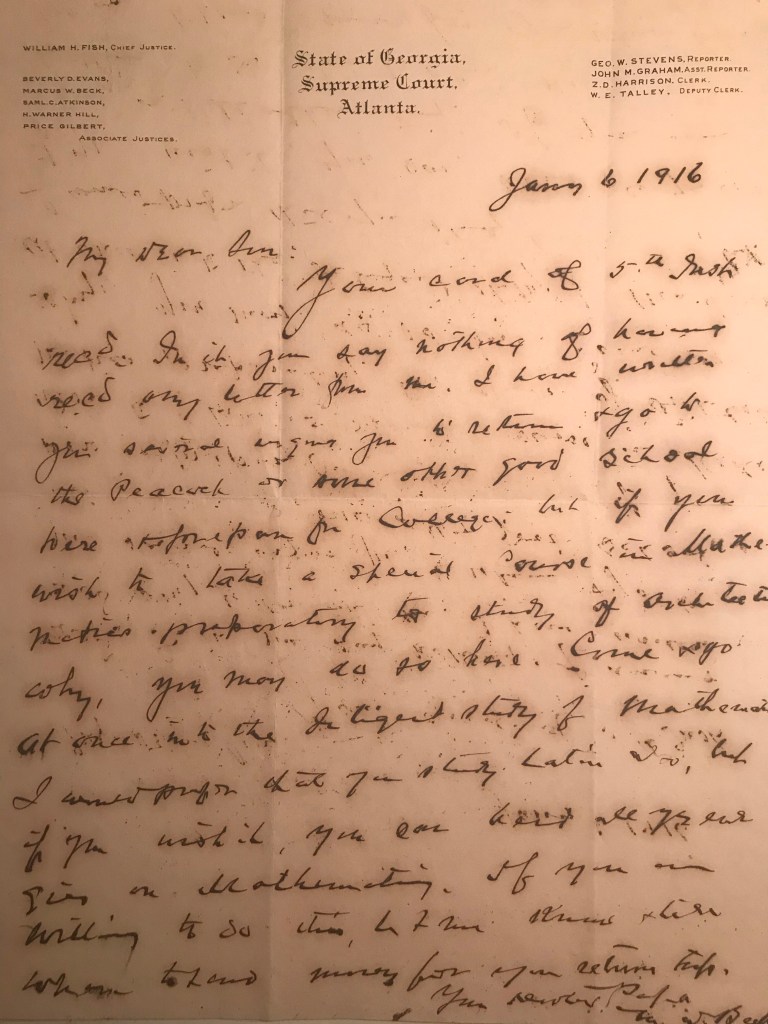 WILLIAM H. FISH, CHIEF JUSTICE.
BEVERLY D. EVANS,
MARCUS W. BECK,
SARL. C. ATKINSON,
H. WARNER HILL,
PRICE GILBERT,
ASSOCIATE JUSTICES.
State of Georgia,
Supreme Court,
Atlanta.
GEO. W. STEVENS, REPORTER
JOHN M. GRAHAM, ASST. REPORTER
Z. D. HARRISON, CLERK.
W. E. TALLEY, DEPUTY CLERK.
Jany 6 1916
My dear Son:
Your card of 5th Inst
recd. In it you say nothing of having
recd any letter from me. I have written
you several urging you to return & go to
the Peacock or some other good school
here to prepare for College; but if you
wish to take a special Course in Mathe
matics preparatory to study of architect
you may do so here. Come & go
at once into the study of Mathemat
I would prefer that you study Latin too, but
if you wish it, you can
on Mathematics. If you are
willing to do this, let me know & tell
whom to send money for your return trip.
Your Papa